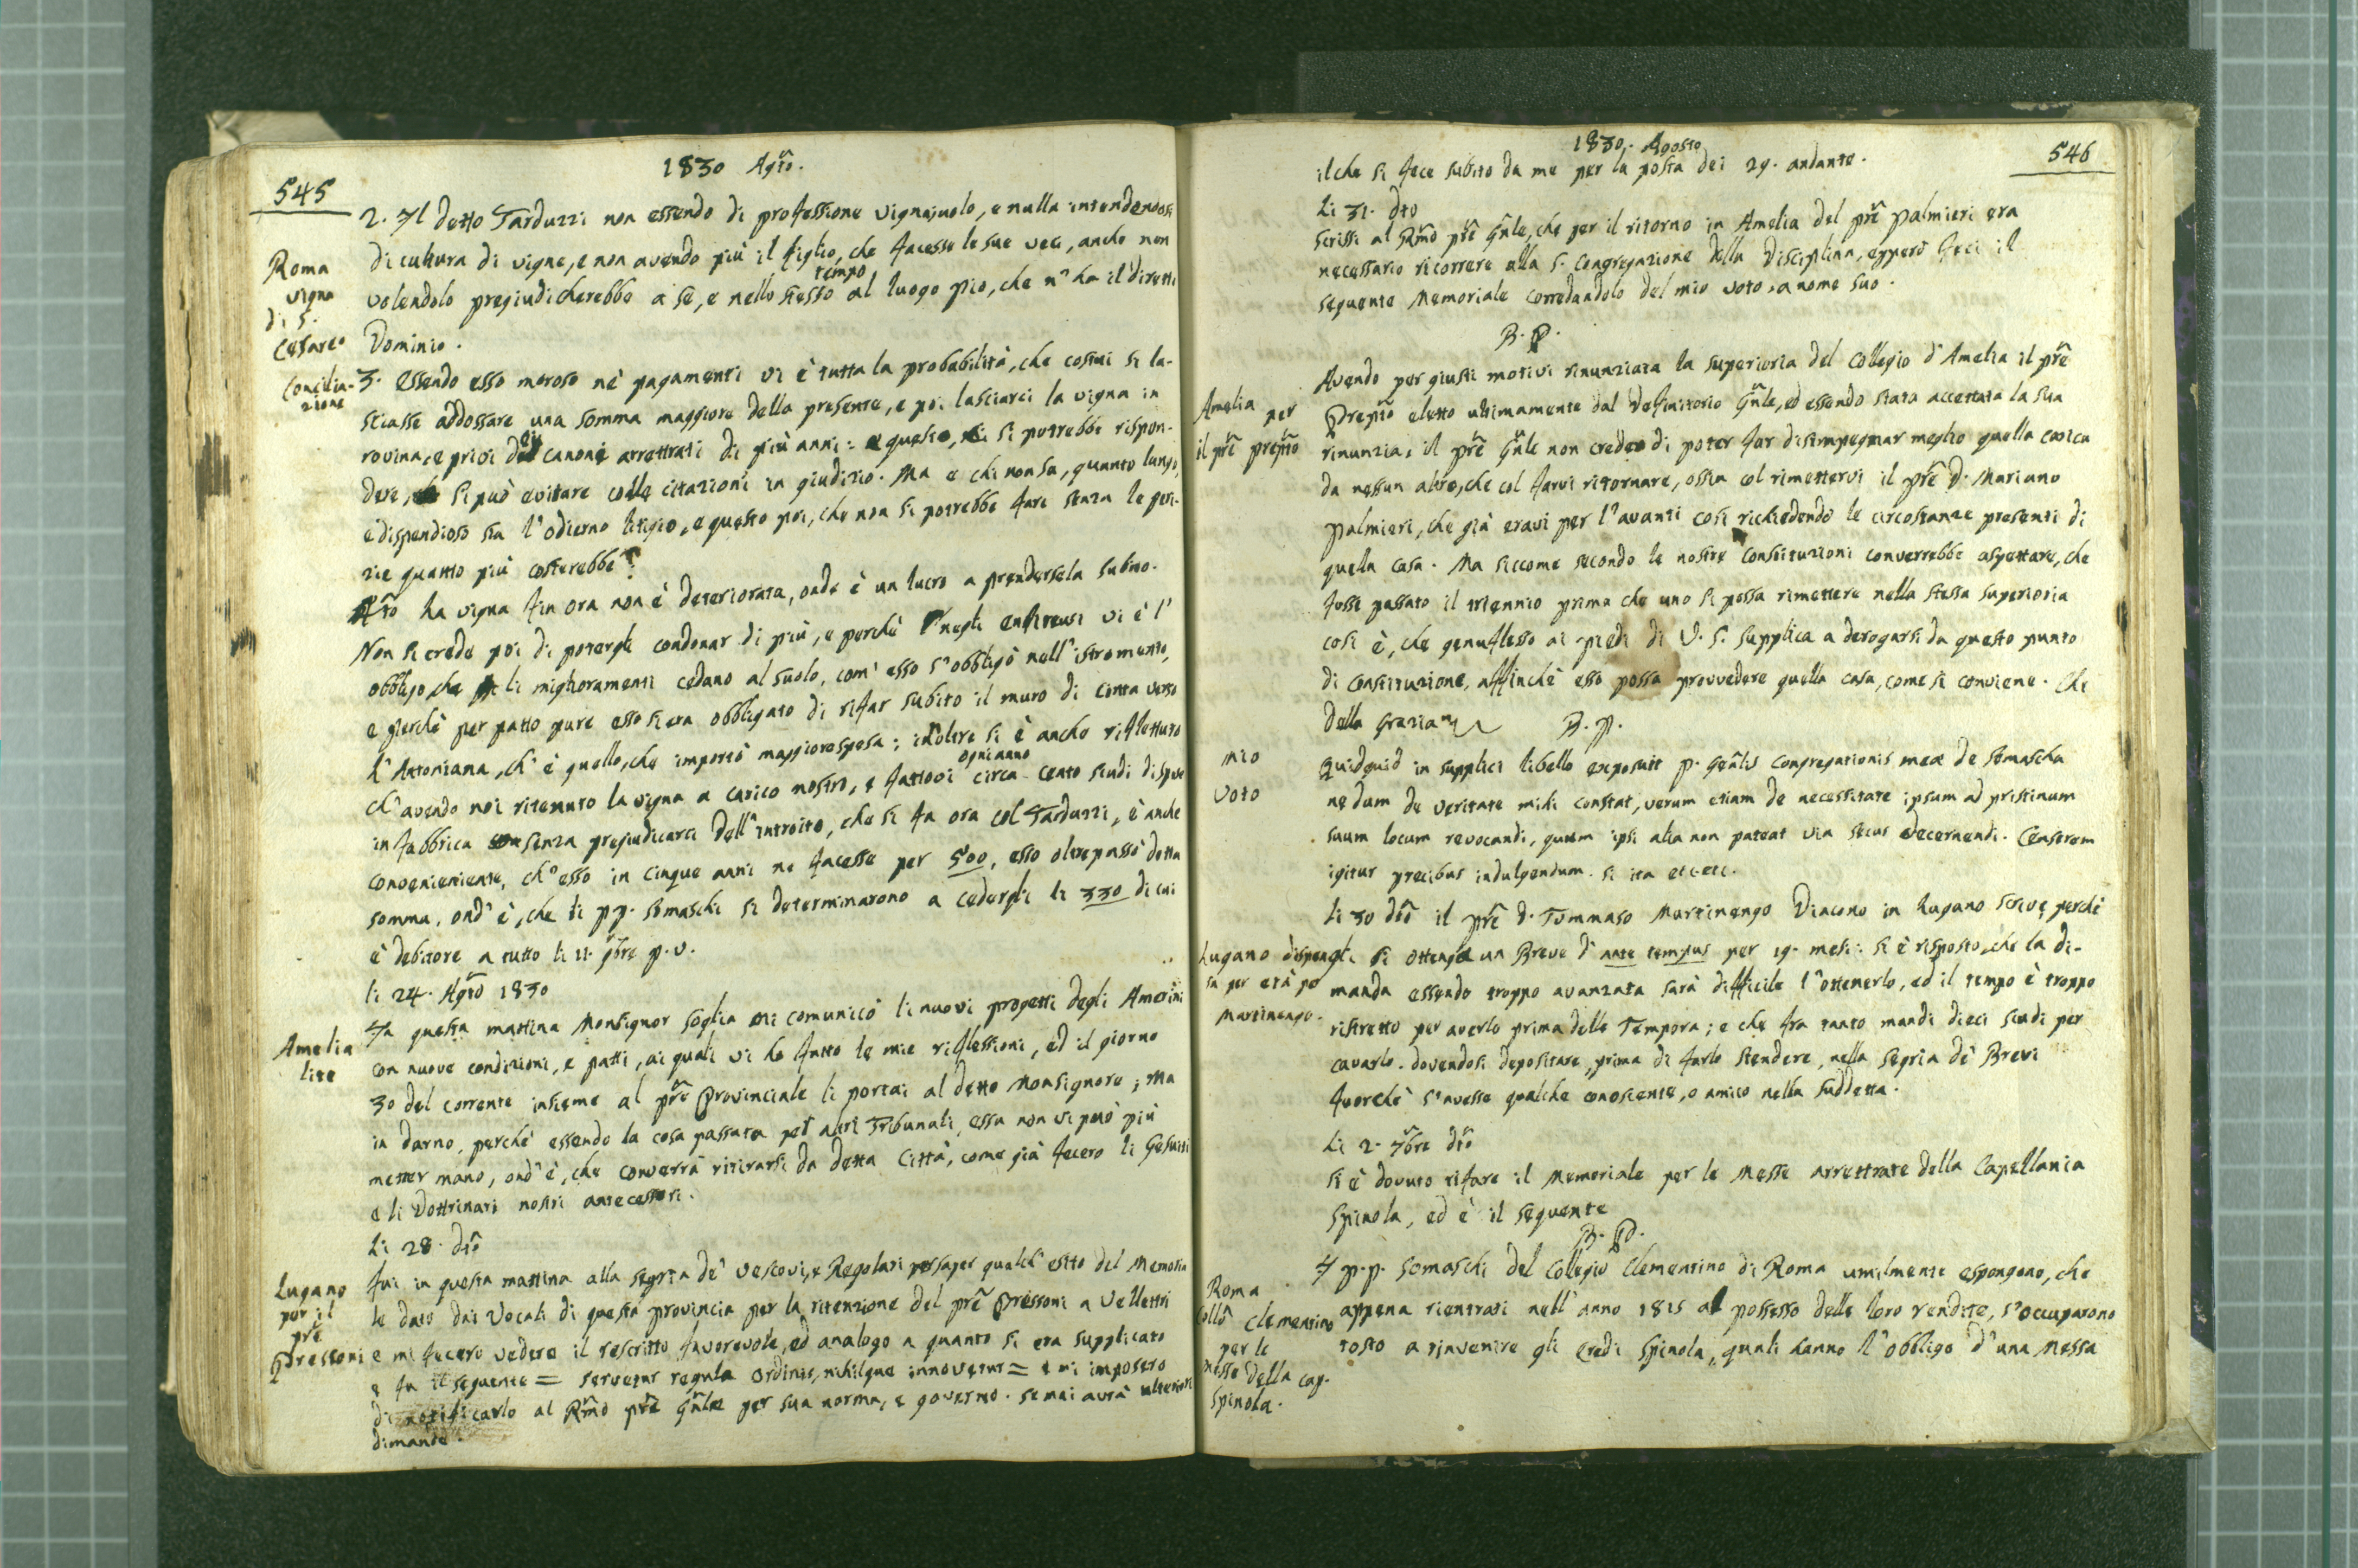 545
1830 Agto.
2. Il detto Tarduzzi non essendo di professione vignajuolo, e nulla intendendosi
di cultura di vigne, e non avendo più il figlio, che facesse le sue veci, anche non
Roma
vigna
di S.
Cesareo
concilia-
zione
tempo
volendolo pregiudicherebbe a se, e nello stesso al luogo pio, che n'ha il diretto
Dominio.
3. Essendo esso moroso nè pagamenti vi è tutta la probabilità, che costui si la-
sciasse addossare una somma maggiore della presente, e poi lasciarci la vigna in
rovina, e privi dei canoni arrettrati di più anni: a questo, si potrebbe rispon-
dere, si può evitare colle citazioni in giudizio. Ma e chi non sa, quanto lungo,
e dispendioso sia l'odierno litigio, e questo poi, che non si potrebbe fare senza le peri-
zie quanto più costerebbe?
4to La vigna fin ora non è deteriorata, onde è un lucro a prendersela subito.
Non si crede poi di potergli condonar di più, e perchè negli enfiteusi vi è l'
obbligo, che li miglioramenti cedano al suolo, com' esso s'obbligò nell'istromento,
e perchè per patto pure esso si era obbligato di rifar subito il muro di cinta verso
l'Antoniana, ch'è quello, che importò maggiore spesa; inoltre si è anche riflettuto
ogni anno
ch'avendo noi ritenuto la vigna a carico nostro, e fattovi circa cento scudi di spese
in fabbrica senza pregiudicarci dell'introito, che si fa ora col Tarduzzi, è anche
conveniente, ch'esso in cinque anni ne facesse per 500, esso oltrepassò detta
somma, ond'è, che li pp. Somaschi si determinarono a cedergli li 330 di cui
è debitore a tutto li 11. 9bre p.v.
li 24. Agto 1830
Amelia
lite
In questa mattina Monsignor Soglia mi comunicò li nuovi progetti degli Amerini
con nuove condizioni, e patti, ai quali vi ho fatto le mie riflessioni, ed il giorno
30 del corrente insieme al prē Provinciale li portai al detto Monsignore; Ma
in darno, perchè essendo la cosa passata per altri Tribunali, essa non vi può più
metter mano, ond'è, che converrà ritirarsi da detta Città, come già fecero li Gesuiti
e li Dottrinari nostri antecessori.
Li 28. dto
Lugano
per il
prē
Pressoni
Fui in questa mattina alla segria de' Vescovi, e Regolari per saper qualch' esito del Memoria
le dato dai Vocali di questa provincia per la ritenzione del prē Pressoni a Vellettri
e mi fecero vedere il rescritto favorevole, ed analogo a quanto si era supplicato
e fu il seguente = servetur regula Ordinis, nihilque innovetur = e mi imposero
di notificarlo al Rmo prē Gnle per sua norma, e governo. se mai avrà ulteriori
dimande.
546
1830. Agosto
il che si fece subito da me per la posta dei 29. andante.
Li 31. dto
Scrissi al Rmo prē Gnle, che per il ritorno in Amelia del prē Palmieri era
necessario ricorrere alla S. Congregazione della Disciplina, epperò feci il
seguente Memoriale corredandolo del mio voto, a nome suo.
B. P.
Amelia per
il prē prepto
Avendo per giusti motivi rinunziata la superioria del Collegio d'Amelia il prē
Prepto eletto ultimamente dal Definitorio Gnle, ed essendo stata accettata la sua
rinunzia, il prē Gnle non crede di poter far disimpegnar meglio quella carica
da nessun altro, che col farvi ritornare, ossia col rimettervi il prē D. Mariano
Palmieri, che già eravi per l'avanti così richiedendo le circostanze presenti di
quella casa. Ma siccome secondo le nostre Constituzioni converrebbe aspettare, che
fosse passato il triennio prima che uno si possa rimettere nella stessa superioria
così è, che genuflesso ai piedi di V. S. supplica a derogarsi da questo punto
di Constituzione, affinchè esso possa provvedere quella casa, come si conviene. Che
della Grazia
B. P.
mio
voto
Quidquid in supplici libello exposuit P. Genlis Congregationis meae de Somascha
nedum de veritate mihi constat, verum etiam de necessitate ipsum ad pristinum
suum locum revocandi, quum ipsi alia non pateat via secus decernendi. Censerem
igitur precibus indulgendum. si ita etc. etc.
li 30 dto il prē D. Tommaso Martinengo Diacono in Lugano scrive perchè
Lugano dispen
sa per età pe
Martinengo.
gli si ottenga un Breve d'ante tempus per 19. mesi: si è risposto, che la di-
manda essendo troppo avanzata sarà difficile l'ottenerlo, ed il tempo è troppo
ristretto per averlo prima delle Tempora; e che fra tanto mandi dieci scudi per
cavarlo. dovendosi depositare, prima di farlo stendere, nella Segria de' Brevi
fuorchè s'avesse qualche conoscente, o amico nella suddetta.
Li 2. 7bre dto
Si è dovuto rifare il Memoriale per le Messe arrettrate della Capellania
Spinola, ed è il seguente
B. P.
Roma
Collo Clementino
per le
messe della cap.
Spinola.
I p.p. Somaschi del Collegio Clementino di Roma umilmente espongono, che
appena rientrati nell'anno 1815 al possesso delle loro rendite, s'occuparono
tosto a rinvenire gli Eredi Spinola, quali hanno l'obbligo d'una Messa